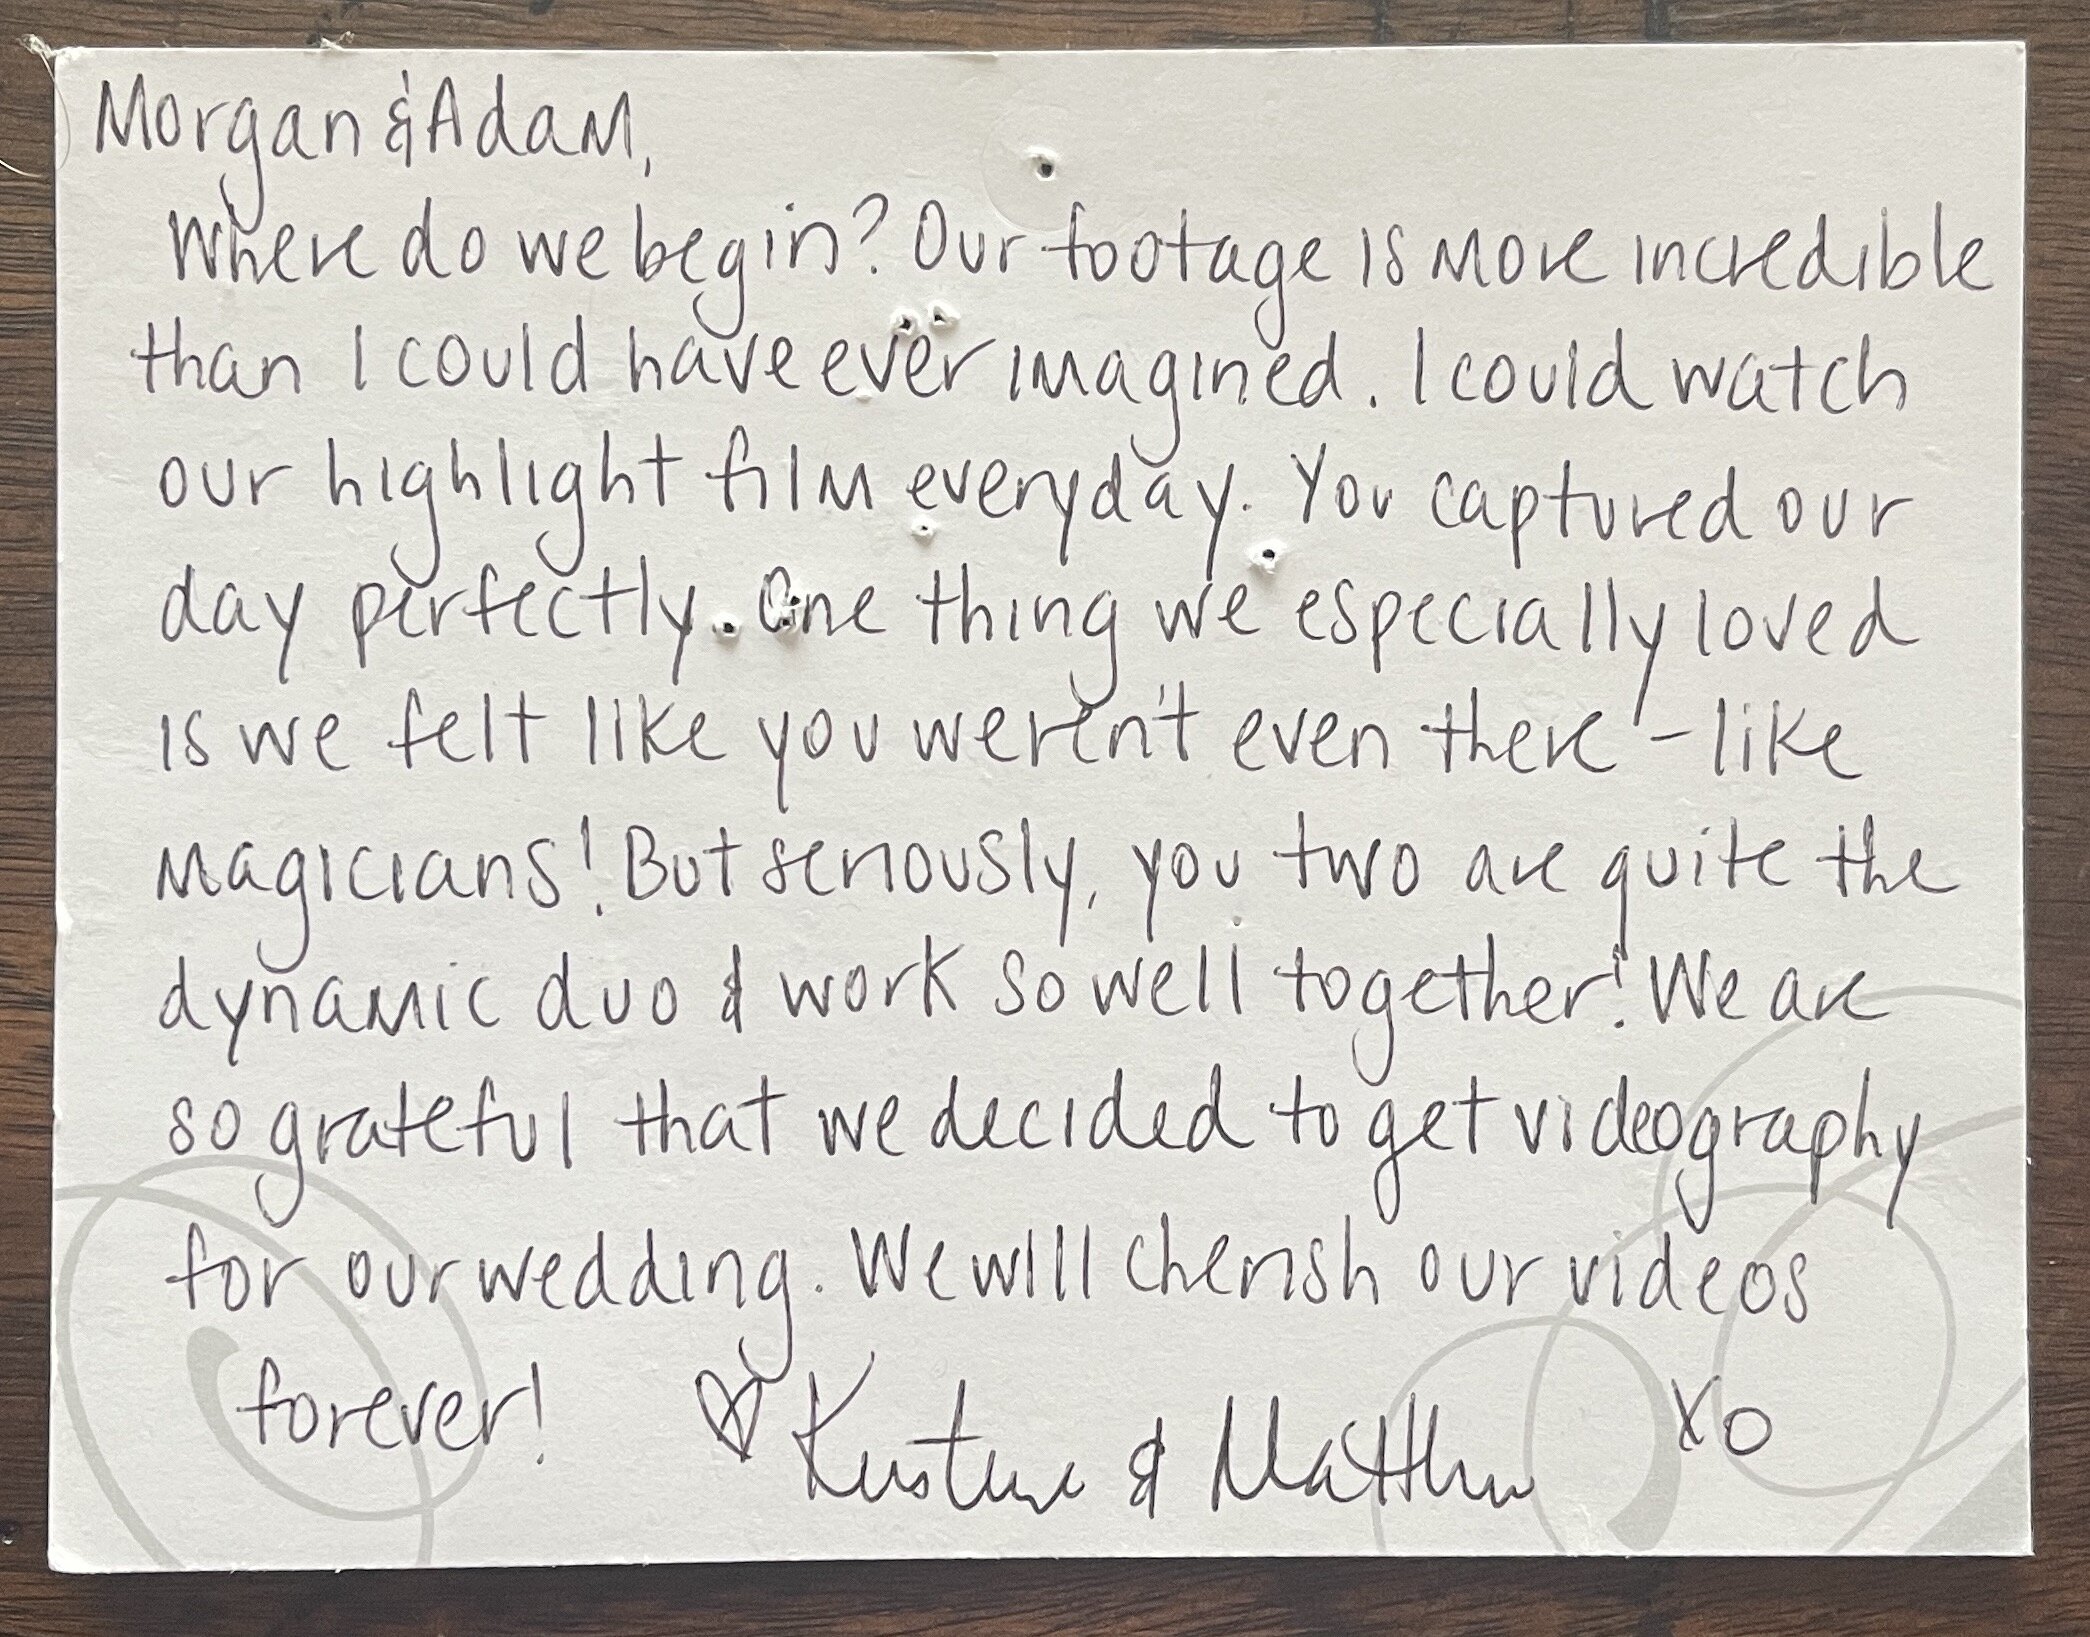 Morgan & Adam,
Where do we begin? Our footage is more incredible
than I could have ever imagined. I could watch
our highlight film everyday. You captured our
day perfectly. One thing we especially loved
is we felt like you weren't even there - like
magicians! But seriously, you two are quite the
dynamic duo & work so well together! We are
so grateful that we decided to get videography
for our wedding. We will cherish our videos
forever! ♡ & Matthew XO